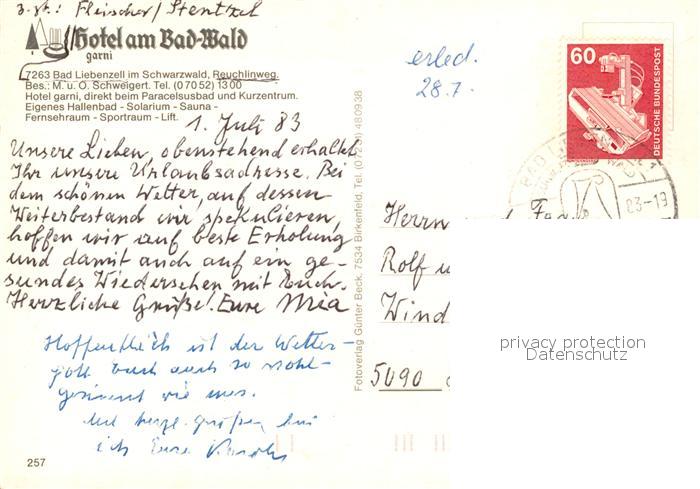 z. Zt.: Fleischer / Stentzel
Hotel am Bad-Wald
garni
7263 Bad Liebenzell im Schwarzwald, Reuchlinweg.
Bes.: M. u. O. Schweigert. Tel. (07052) 1300
Hotel garni, direkt beim Paracelsusbad und Kurzentrum.
Eigenes Hallenbad - Solarium - Sauna -
Fernsehraum - Sportraum - Lift.
1. Juli 83
Unsere Lieben, obenstehend erhaltet
Ihr unsere Urlaubsadresse. Bei
dem schönen Wetter, auf dessen
Weiterbestand wir spekulieren,
hoffen wir auf beste Erholung
und damit auch auf ein ge-
sundes Wiedersehen mit Euch.
Herzliche Grüße! Eure Mia
Hoffentlich ist der Wetter-
gott Euch auch so wohl-
gesinnt wie uns.
ich Eure
257
Fotoverlag Günter Beck, 7534 Birkenfeld, Tel. (07231) 480938
erled.
28.7.
60
DEUTSCHE BUNDESPOST
83-19
Herrn
Rolf u
Wind
5090
privacy protection
Datenschutz